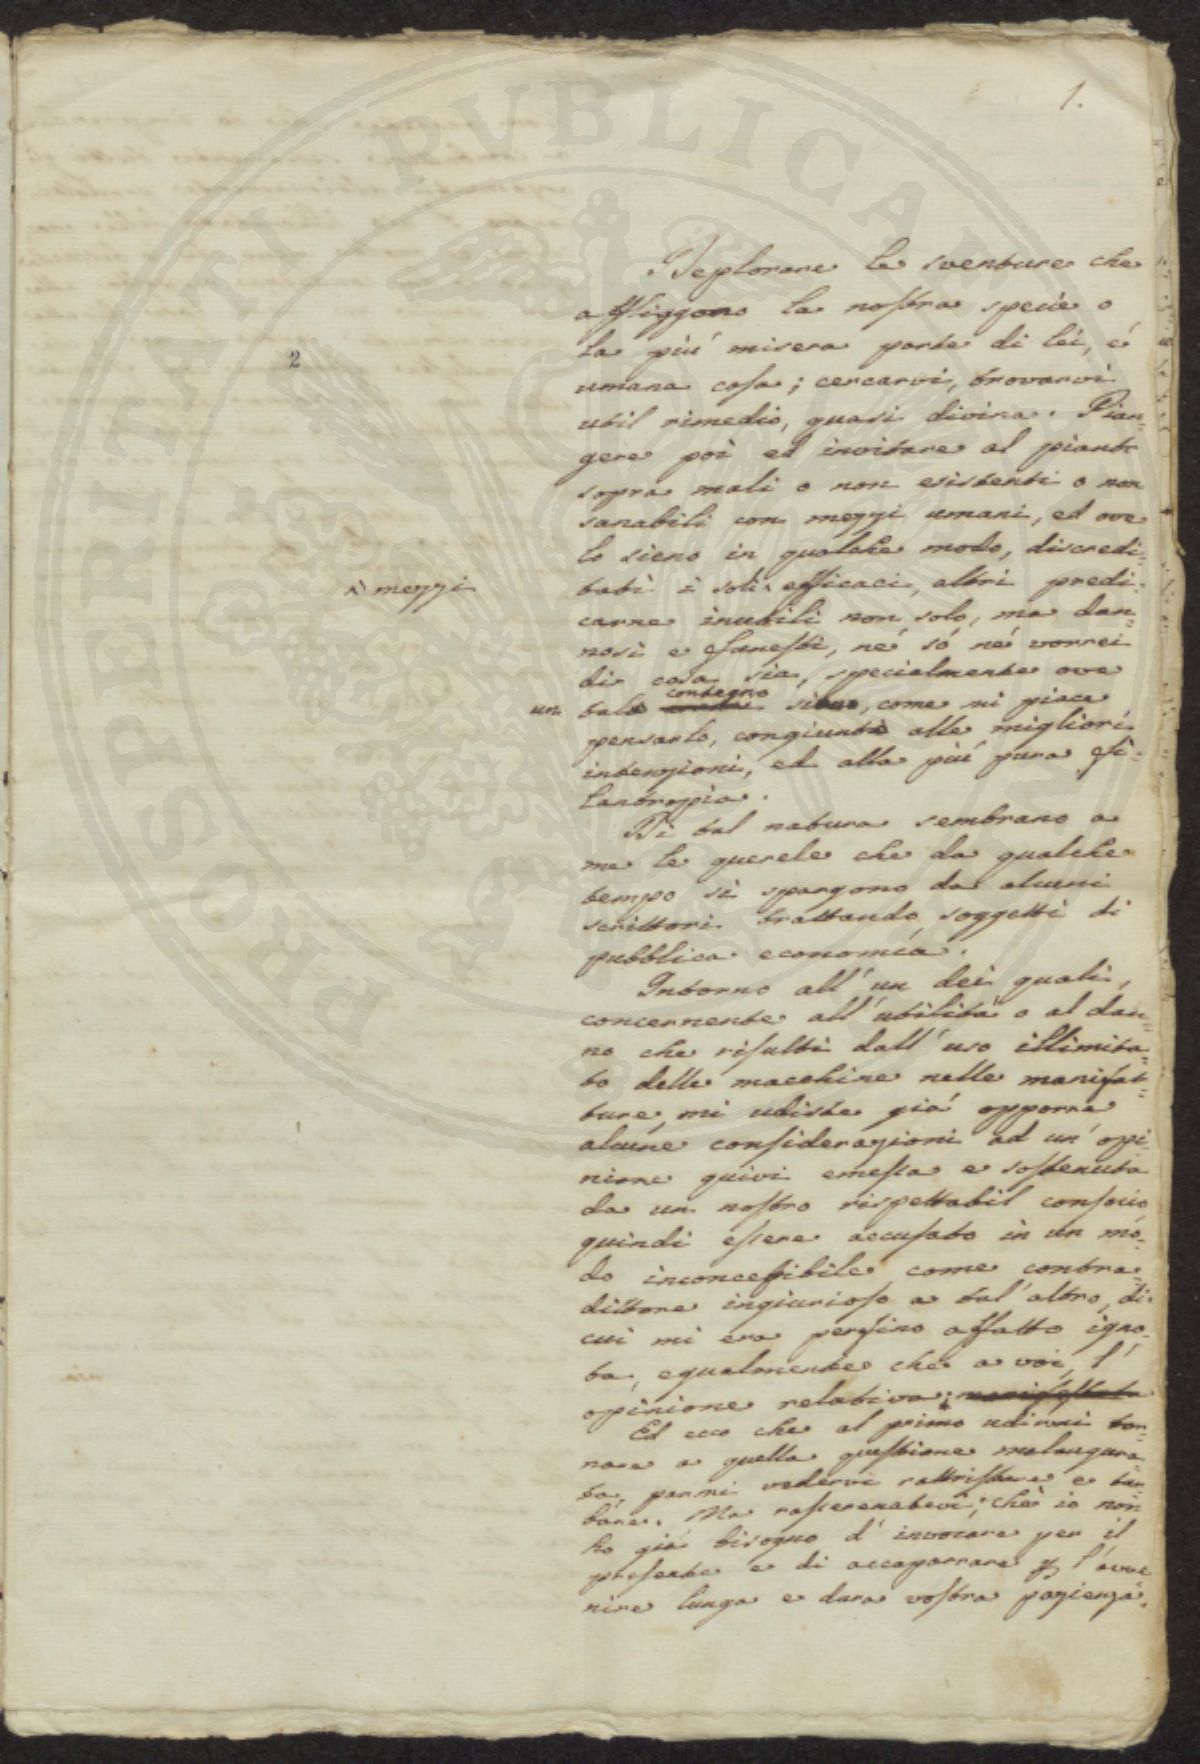 1.
2
Deplorare le sventure che
affliggono la nostra specie o
la più misera parte di lei, é
umana cosa; cercarvi, trovarvi
util rimedio, quasi divina. Pian-
gere poi ed invitare al pianto
sopra mali o non esistenti o non
sanabili con mezzi umani, ed ove
lo sieno in qualche modo, discredi-
tati i soli ^ efficaci, altri predi-
^ mezzi
carne inutili non solo, ma dan-
nosi e funesti, né só né vorrei
dir cosa sia, specialmente ove
un tal contegno sia, come mi giace
pensarlo, congiunto alle migliori
intenzioni, ed alla più pura fi-
lantropia.
Di tal natura sembrano a
me le querele che da qualche
tempo si spargono da alcuni
scrittori trattando soggetti di
pubblica economía.
Intorno all'un dei quali,
concernente all'utilità o al dan-
no che risulti dall'uso illimita-
to delle macchine nelle manifat-
ture, mi udiste giá opporre
alcune considerazioni ad un'opi-
nione quivi emessa e sostenuta
da un nostro rispettabil consocio
quindi essere accusato in un mo-
do inconcepibile come contra-
dittore ingiurioso a tal'altro, di
cui mi era perfino affatto igno-
ta, egualmente che a voi, l'
opinione relativa; manifestata
Ed ecco che al primo udirmi tor-
nare a quella questione malaugura-
ta parmi vedervi rattristare e tur-
bare. Ma rasserenatevi; ché io non
ho giá bisogno d'invocare per il
presente e di accaparrare p l'avve
nire lunga e dura vostra pazienza.
PROSPERITATI PVBLICAE